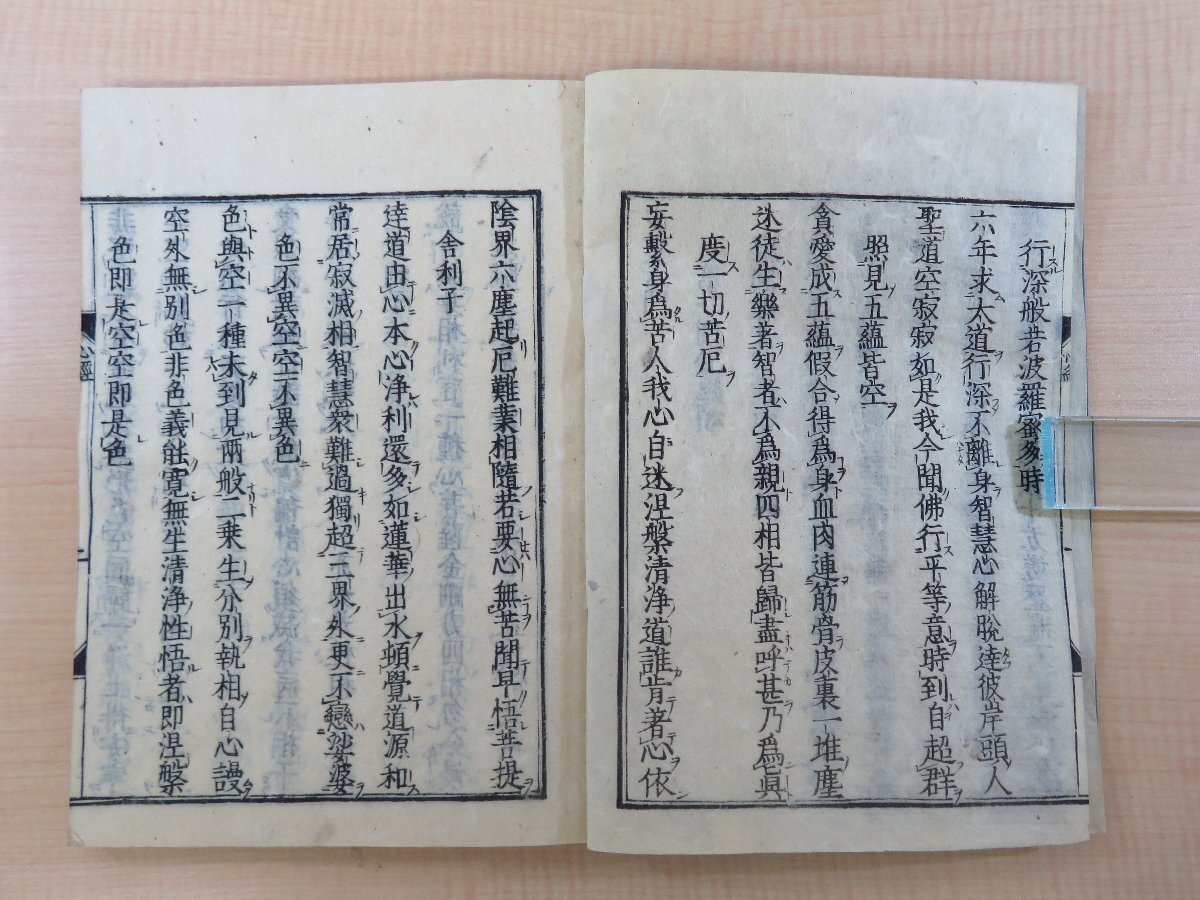 行深般若波羅蜜多時
六年求大道行深不離身智慧心解脫達彼岸頭人
聖道空寂寂如是我今聞佛行平等意時到自超群
照見五蘊皆空
貪愛成五蘊假合得爲身血肉連筋骨皮裏一堆塵
迷徒生樂著智者不爲親四相皆歸盡呼甚乃爲眞
度一切苦厄
妄繫身爲苦人我心自迷涅槃清浄道誰肯著心依
陰界六塵起厄難業相隨若要心無苦聞早悟菩提
舍利子
達道由心本心浄利還多如蓮華出水頓覺道源和
常居寂滅相智慧衆難過獨超三界外更不戀娑婆
色不異空空不異色
色與空一種未到見兩般二乗生分別執相自心謾
空外無別色非色義能寛無生清浄性悟者即涅槃
色即是空空即是色
心經